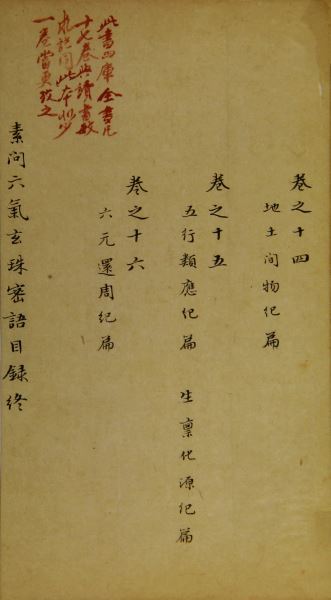 卷之十四
地土間物紀篇
卷之十五
五行類應紀篇　生稟化源紀篇
卷之十六
六元還周紀篇
此書四庫全書凡
十七卷與讀書敏
求記同此本似少
一卷當更攷之
素問六氣玄珠密語目録終